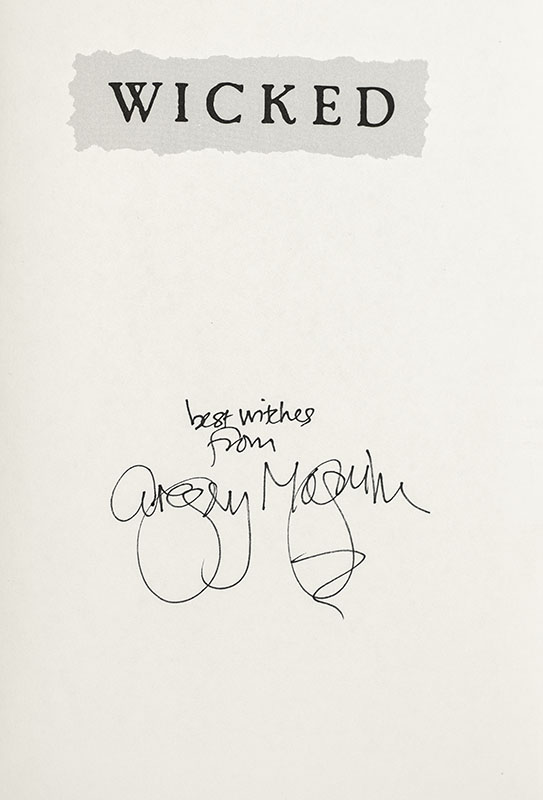 WICKED
best witches
from
Gregory Maguire